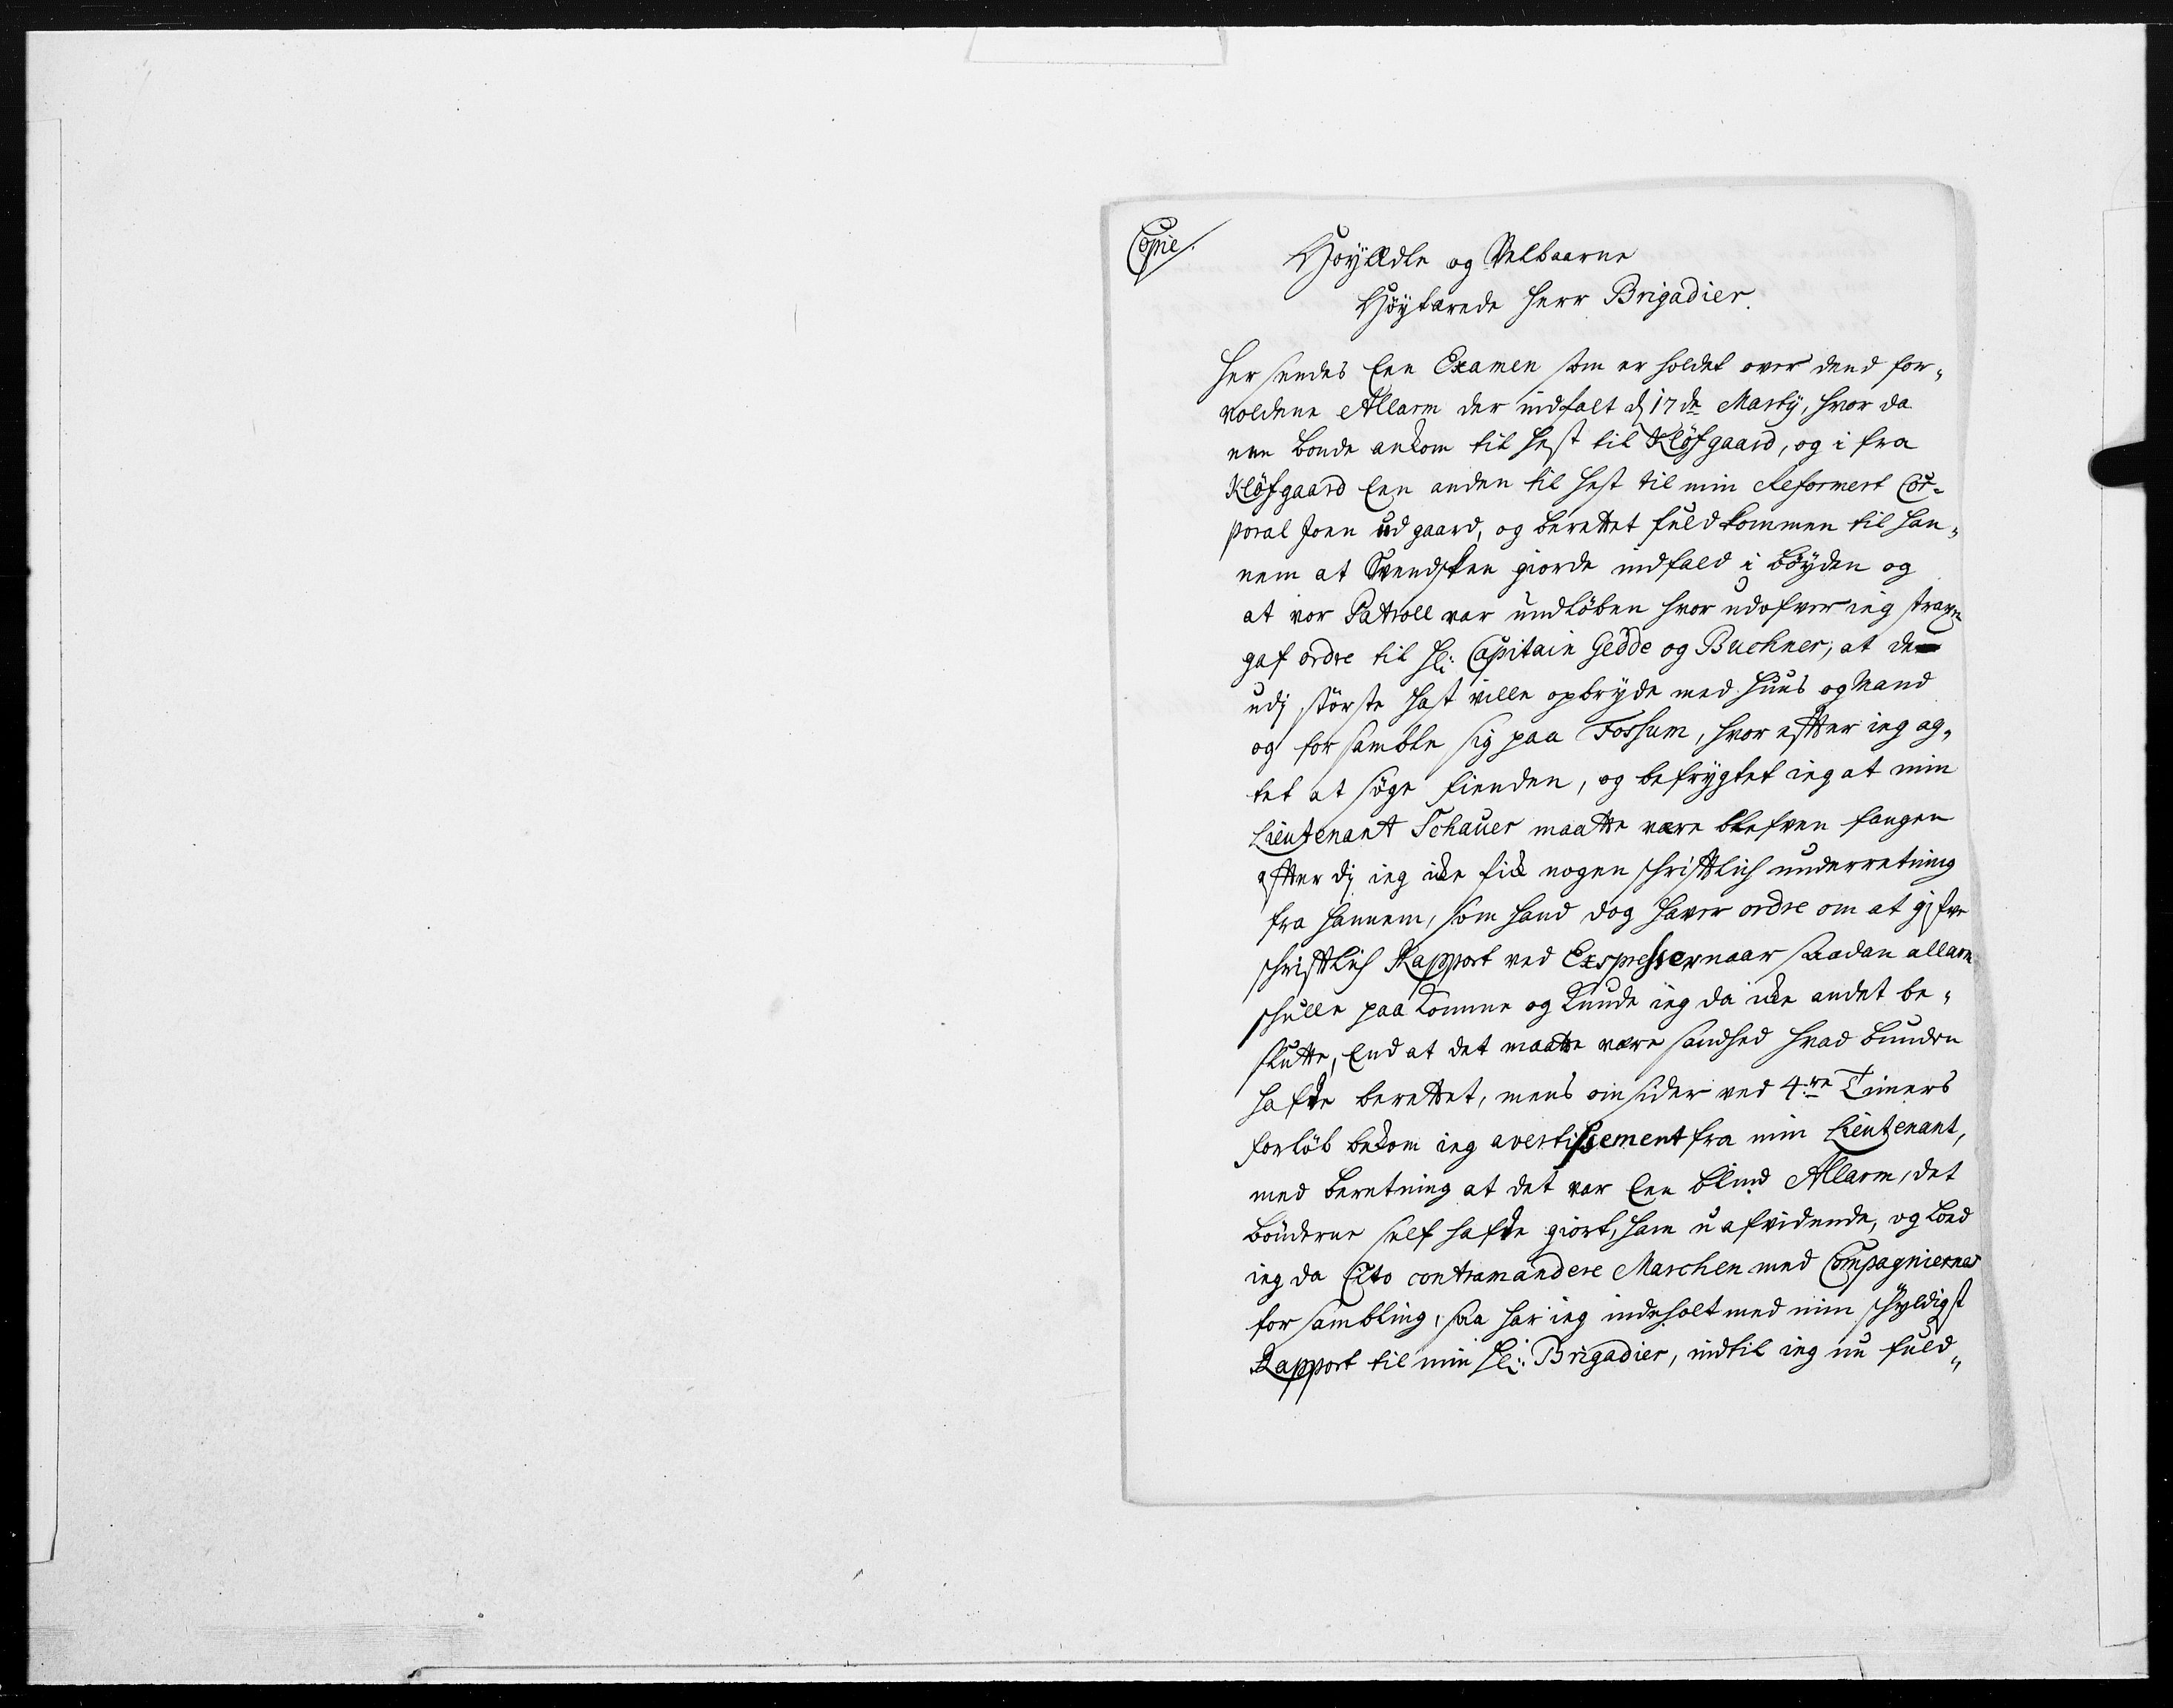 Copie.
HöyÆdle og Velbaarne
Höytærede Herr Brigadier.
Her sendes Een Examen som er holdet over dend for-
voldene Allarm der indfalt d 17de Marty, hvor da
een bonde ankom til Hest til Klöfgaard, og i fra
Klöfgaard Een anden til Hest til min Reformert Cor-
poral Joen udgaard, og berettet fuldkommen til han-
nem at Svendsken giorde indfald i böyden og
at vor Patroll var undlöben hvor udofver ieg strax
gaf ordre til Hr: Capitain Gedde og Buchner, at de
udj störste Hast ville opbryde med Huus og Mand
og forsamble sig paa Fossum, hvor efter ieg ag-
tet at söge fienden, og befrygtet ieg at min
Lieutenant Schauer maatte være blefven fangen
efter dj ieg icke fick nogen schriftlich underretning
fra hannem, som hand dog haver ordre om at gifve
schriftlich Rapport ved Expresser naar saadan allarm
schulle paa komme og kunde ieg da icke andet be-
slutte, End at det maatte være sandhed hvad bunden
hafde berettet, mens omsider ved 4re Timers
forlöb bekom ieg avertissement fra min Lieutenant,
med beretning at det var Een blind Allarm, det
bönderne self hafde giort, ham uafvidende, og loed
ieg da Cito contramandere Marchen med Compagniernes
forsambling, saa har ieg indeholt med min schyldigst
Rapport til min Hr: Brigadier, indtil ieg nu fuld-